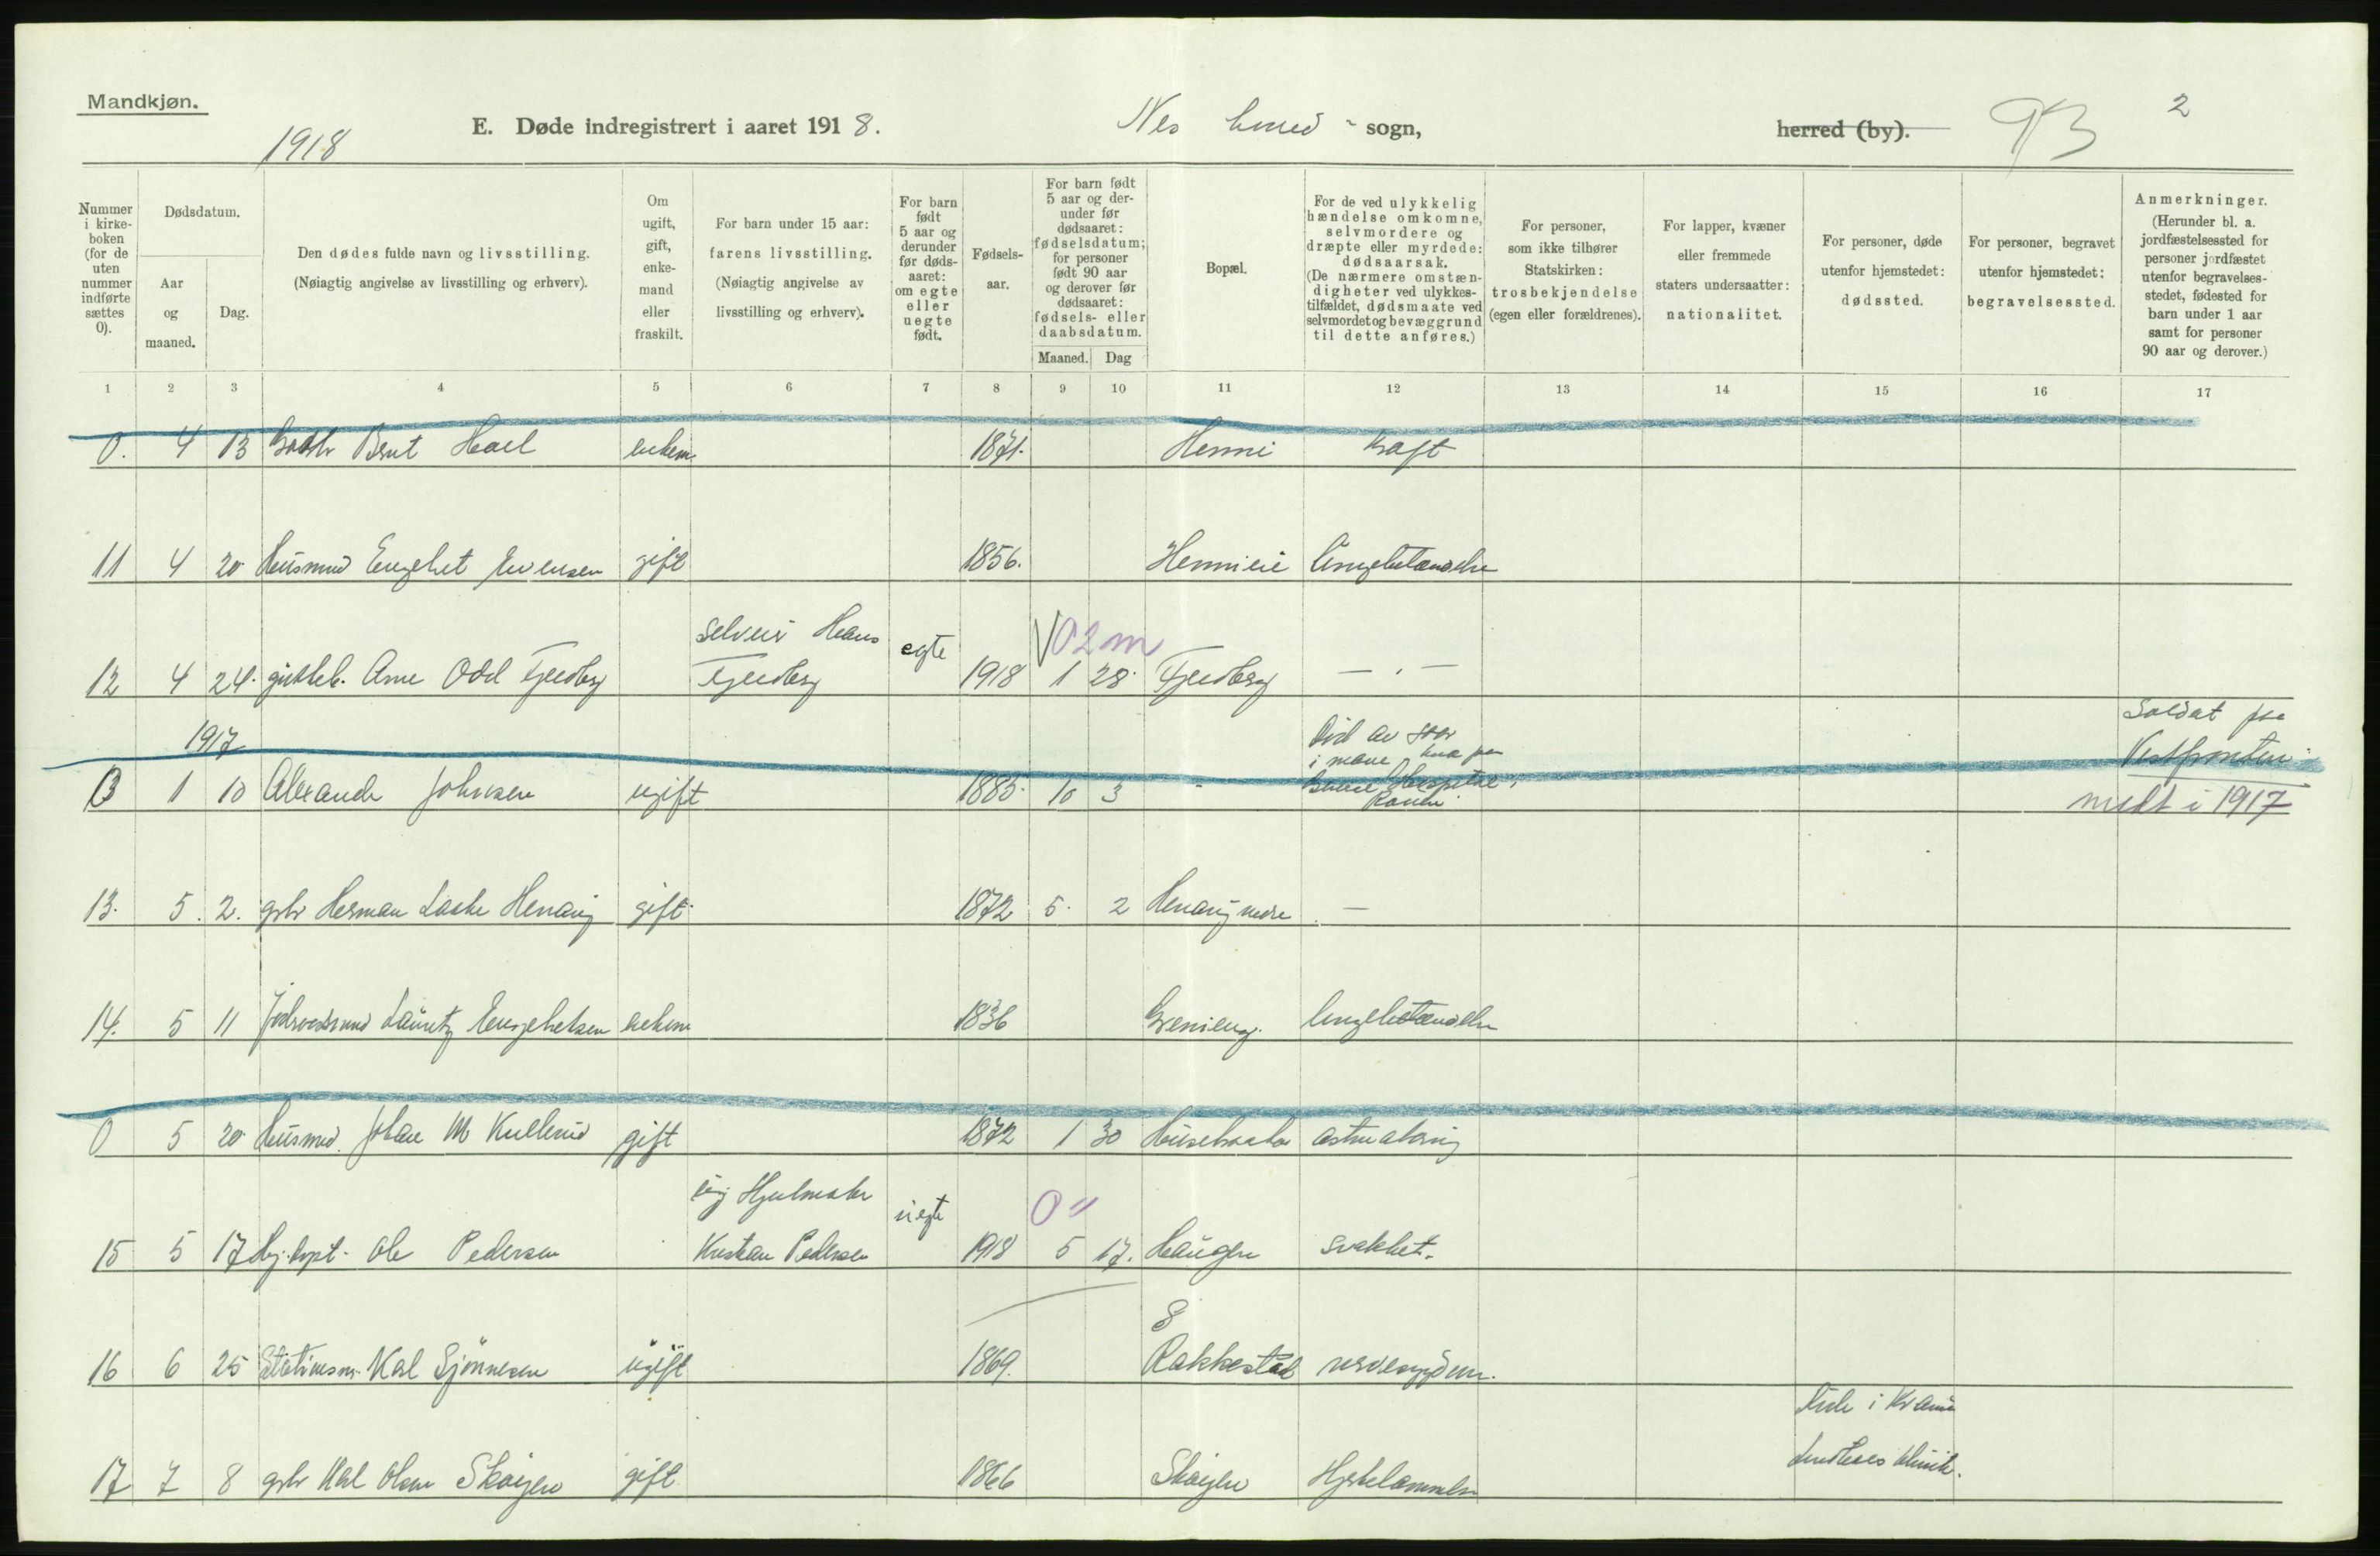 Mandkjøn.
1918
E. Døde indregistrert i aaret 1918.
Nes - sogn,
herred (by).
93
2
Nummer i kirke- boken (for de uten nummer indførte sættes 0).
Dødsdatum.
Aar og maaned.
Dag.
Den dødes fulde navn og livsstilling.
(Nøiagtig angivelse av livsstilling og erhverv).
Om ugift, gift, enke- mand eller fraskilt.
For barn under 15 aar:
farens livsstilling.
(Nøiagtig angivelse av livsstilling og erhverv).
For barn født 5 aar og derunder før døds- aaret: om egte eller uegte født.
Fødsels- aar.
For barn født 5 aar og der- under før dødsaaret: fødselsdatum; for personer født 90 aar og derover før dødsaaret: fødsels- eller daabsdatum.
Maaned. Dag
Bopæl.
For de ved ulykkelig hændelse omkomne, selvmordere og dræpte eller myrdede: dødsaarsak.
(De nærmere omstæn- digheter ved ulykkes- tilfældet, dødsmaate ved selvmordet og bevæggrund til dette anføres.)
For personer, som ikke tilhører Statskirken: trosbekjendelse (egen eller forældrenes).
For lapper, kvæner eller fremmede staters undersaatter: nationalitet.
For personer, døde utenfor hjemstedet: dødssted.
For personer, begravet utenfor hjemstedet: begravelsessted.
Anmerkninger.
(Herunder bl. a. jordfæstelsessted for personer jordfæstet utenfor begravelses- stedet, fødested for barn under 1 aar samt for personer 90 aar og derover.)
1 2 3 4 5 6 7 8 9 10 11 12 13 14 15 16 17
0. 4 13 Bernt Hoel enkem. 1871. Henni kræft
11 4 20 Husmnd Engebret Evensen gift 1856. Hennieie Lungebetændelse
Selveier Hans egte V02m
12 4 24. Arne Odd Fjeldberg Fjeldberg 1918 1 28. Fjeldberg — . —
1917 Død av saar Soldat paa
i mave Vestfronten
13 1 10 Alexander Johnsen ugift 1885. 10 3 - Hospital, Rouen meldt i 1917
13. 5. 2. grbr Herman Laske Henaug gift 1872 5. 2 Henaug nedre —
14. 5 11 Lauritz Engebretsen enkem 1836 Grenieng. Lungebetændelse
0 5 20 Husmnd. Johan M Kullerud gift 1872 1 30 Husebraaten
ug Hjulmaker uegte 0 "
15 5 17 Hj.døpt. Ole Pedersen Kristian Pedersen 1918 5 17. Haugen Svakhet.
8
16 6 25 Stationsm. Karl Sjønnesen ugift 1869. Rakkestad nervesygdom.
Døde i Kr.ania
17 7 8 grbr Karl Olsen Skøyen gift 1866 Skøyen Hjertelammelse klinik.